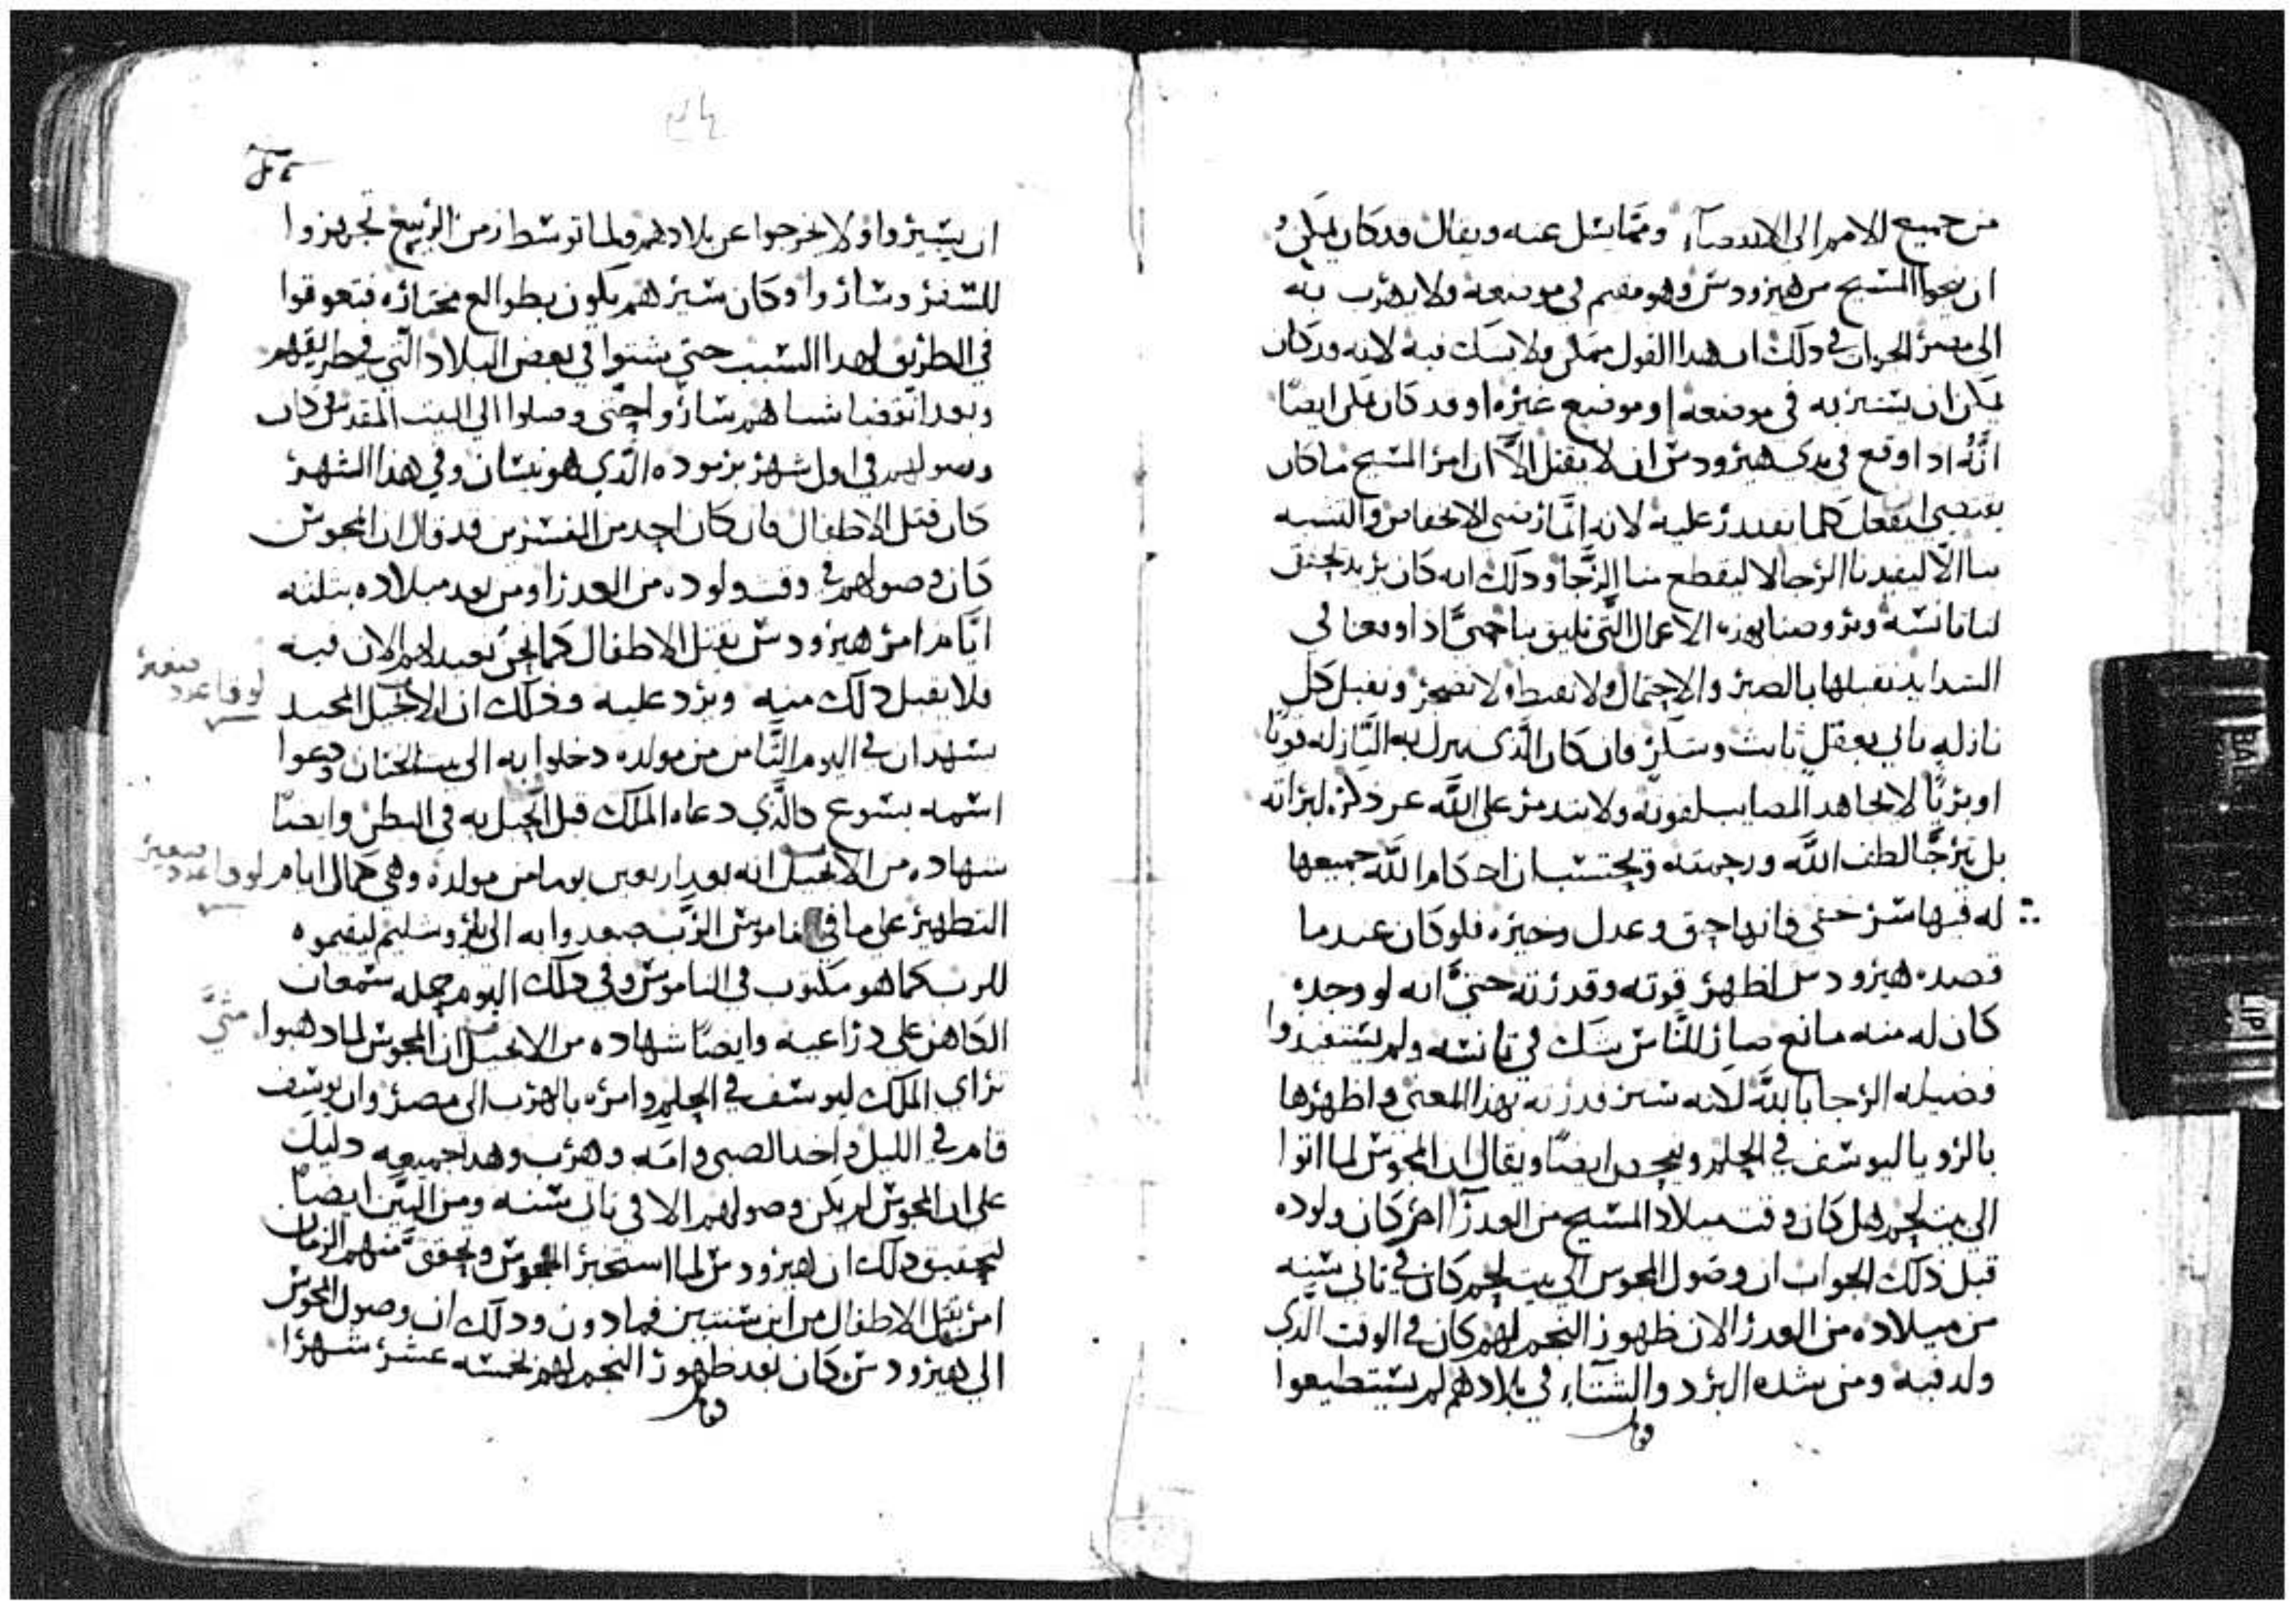 من جميع الامم الى الانقضاء ومما يسل عنه ويقال قد كان يمكن
ان ينجوا المسيح من هيرودس وهو مقيم في موضعه ولا يهرب به
الى مصر الجواب في ذلك ان هدا القول ممكن ولا يشك فيه لانه قد كان
يمكن ان يستتر به في موضعه او موضع غيره او قد كان يمكن ايضًا
انَّه ادا وقع في يدي هيرودس ان لا يقتل الاَّ ان امر المسيح ما كان
يقتضي ان يفعل كلما يقدر عليه لانه انما رضى الاتخفاض والتشبه
بنا الّا ليفيدنا الرجا لا ليقطع منا الرَّجا ودلك انه كان يريد يحقق
لنا تانسه ويروضنا بهذه الاعمال التَّي تليق بنا حتيَّ ادا وقعنا في
الشدايد نقبلها بالصبر والاحتمال ولا نقنط ولا نضجر ونقبل كل
نازله تاتي بعقل ثابت وشكر فان كان الَّذي تنزل به النَّازله قويًا
او بريًّا لا يجاهد المصايب لقوته ولا يتدمر على اللَّه عز ذكره لبراته
بل يترجَّا لطف اللَّه ورحمته ويحتسب ان احكام اللَّه جميعها
له فيها سر خفي فانها حق وعدل وخيره فلو كان عندما
قصده هيرودس اظهر قوته وقدرته حتيَّ انه لو وجده
كان له منه مانع صار للنَّاس شك في تانسه ولم يستفيدوا
فضيله الرجا باللَّه لانه ستر قدرته بهذا المعني واظهرها
بالرويا ليوسف في الحلم ويبحص ايضًا ويقال ان المجوس لما اتوا
الى بيت لحم هل كان وقت ميلاد المسيح من العدرآ ام كان ولوده
قبل ذلك الجواب ان وصول المجوس الى بيت لحم كان في تاني سنه
من ميلاده من العدرا لان ظهور النجم لهم كان في الوقت الَّدي
ولد فيه ومن شده البرد والشتآء في بلادهم لم يستطيعوا
ان يسيروا ولا يخرجوا عن بلادهم ولما توسط زمن الربيع تجهزوا
للسفر وساروا وكان سيرهم يكون بطوالع مختاره فتعوقوا
في الطريق لهدا السبب حتي يشتوا في بعض البلاد التَّي في طريقهم
وبعد انقضا شتاهم ساروا حتَّي وصلوا الي البيت المقدس وكان
وصولهم في اول شهر برموده الَّذي هو نيسان وفي هذا الشهر
كان قتل الاطفال فان كان احد من المفسرين قد قال ان المجوس
كان وصولهم في وقت ولوده من العدرا ومن بعد ميلاده بتلته
ايَّام امر هيرودس بقتل الاطفال كما نحن نعيد لهم الان فيه
فلا يقبل دلك منه ويرد عليه وذلك ان الانجيل المجيد
يشهد ان في اليوم الثَّامن من مولده دخلوا به الى بيت الختان ودعوا
اسمه يسوع كالَّذي دعاه الملاك قبل الحبل به في البطن وايضًا
شهاده من الانجيل انه بعد اربعين يوما من مولده وهي كمال ايام
التطهير على ما في ناموس الرَّب صعدوا به الى يروشليم ليقيموه
للرب كما هو مكتوب في الناموس وفي دلك اليوم حمله سمعان
الكاهن علي دراعيه وايضًا شهاده من الانجيل ان المجوس لما دهبوا
ترأي الملاك ليوسف في الحلم وامره بالهرب الى مصر وان يوسف
قام في الليل واخد الصبي وامه وهرب وهدا جميعه دليل
على ان المجوس لم يكن وصولهم الا في تاني سنه ومن البيّن ايضًا
لتحقيق دلك ان هيرودس لما استخبر المجوس وتحقق منهم الزمان
امر بقتل الاطفال من ابن سنتين فما دون ودلك ان وصول المجوس
الي هيرودس كان بعد ظهور النجم لهم بخمسه عشر شهرًا
لوقا
صغير
عدد
لوقا
صغير
عدد
متيَّ
BAL
LIP